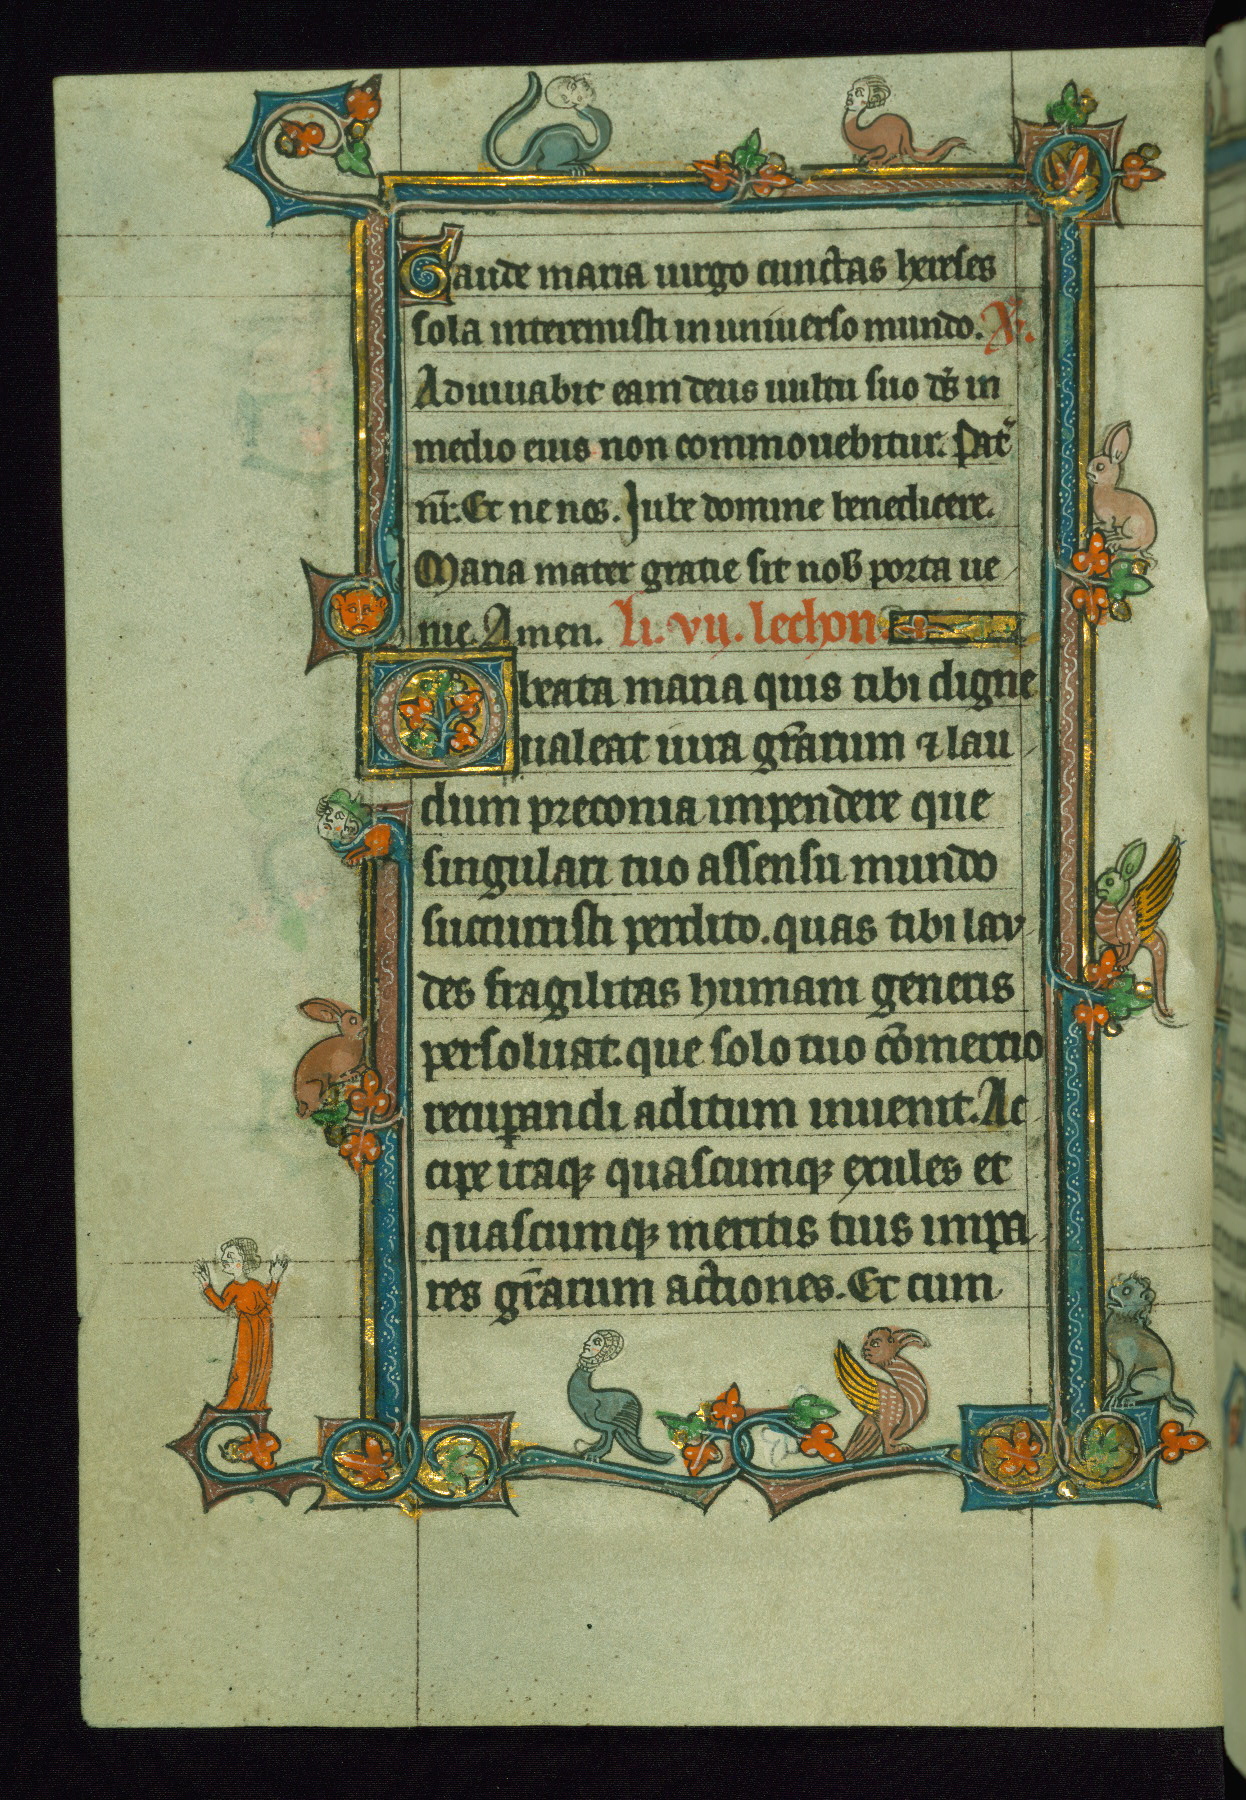 Gaude maria uirgo cunctas hereses
sola interemisti in uniuerso mundo. V.
Adiuuabit eam deus uultu suo ds̄ in
medio eius non commouebitur. Pat̄
nr̄. Et ne nos. Iube domine benedicere.
Maria mater gratie sit nob̄ porta ue
nie. Amen. li. vij. lechon
O beata maria quis tibi digne
ualeat iura gr̄arum ⁊ lau
dum preconia impendere que
singulari tuo assensu mundo
succurristi perdito. quas tibi lau
des fragilitas humani generis
persoluat. que solo tuo cōmertio
recuꝑandi aditum inuenit. Ac
cipe itaqꝫ quascumqꝫ exiles et
quascumqꝫ meritis tuis impa
res gr̄arum actiones. Et cum